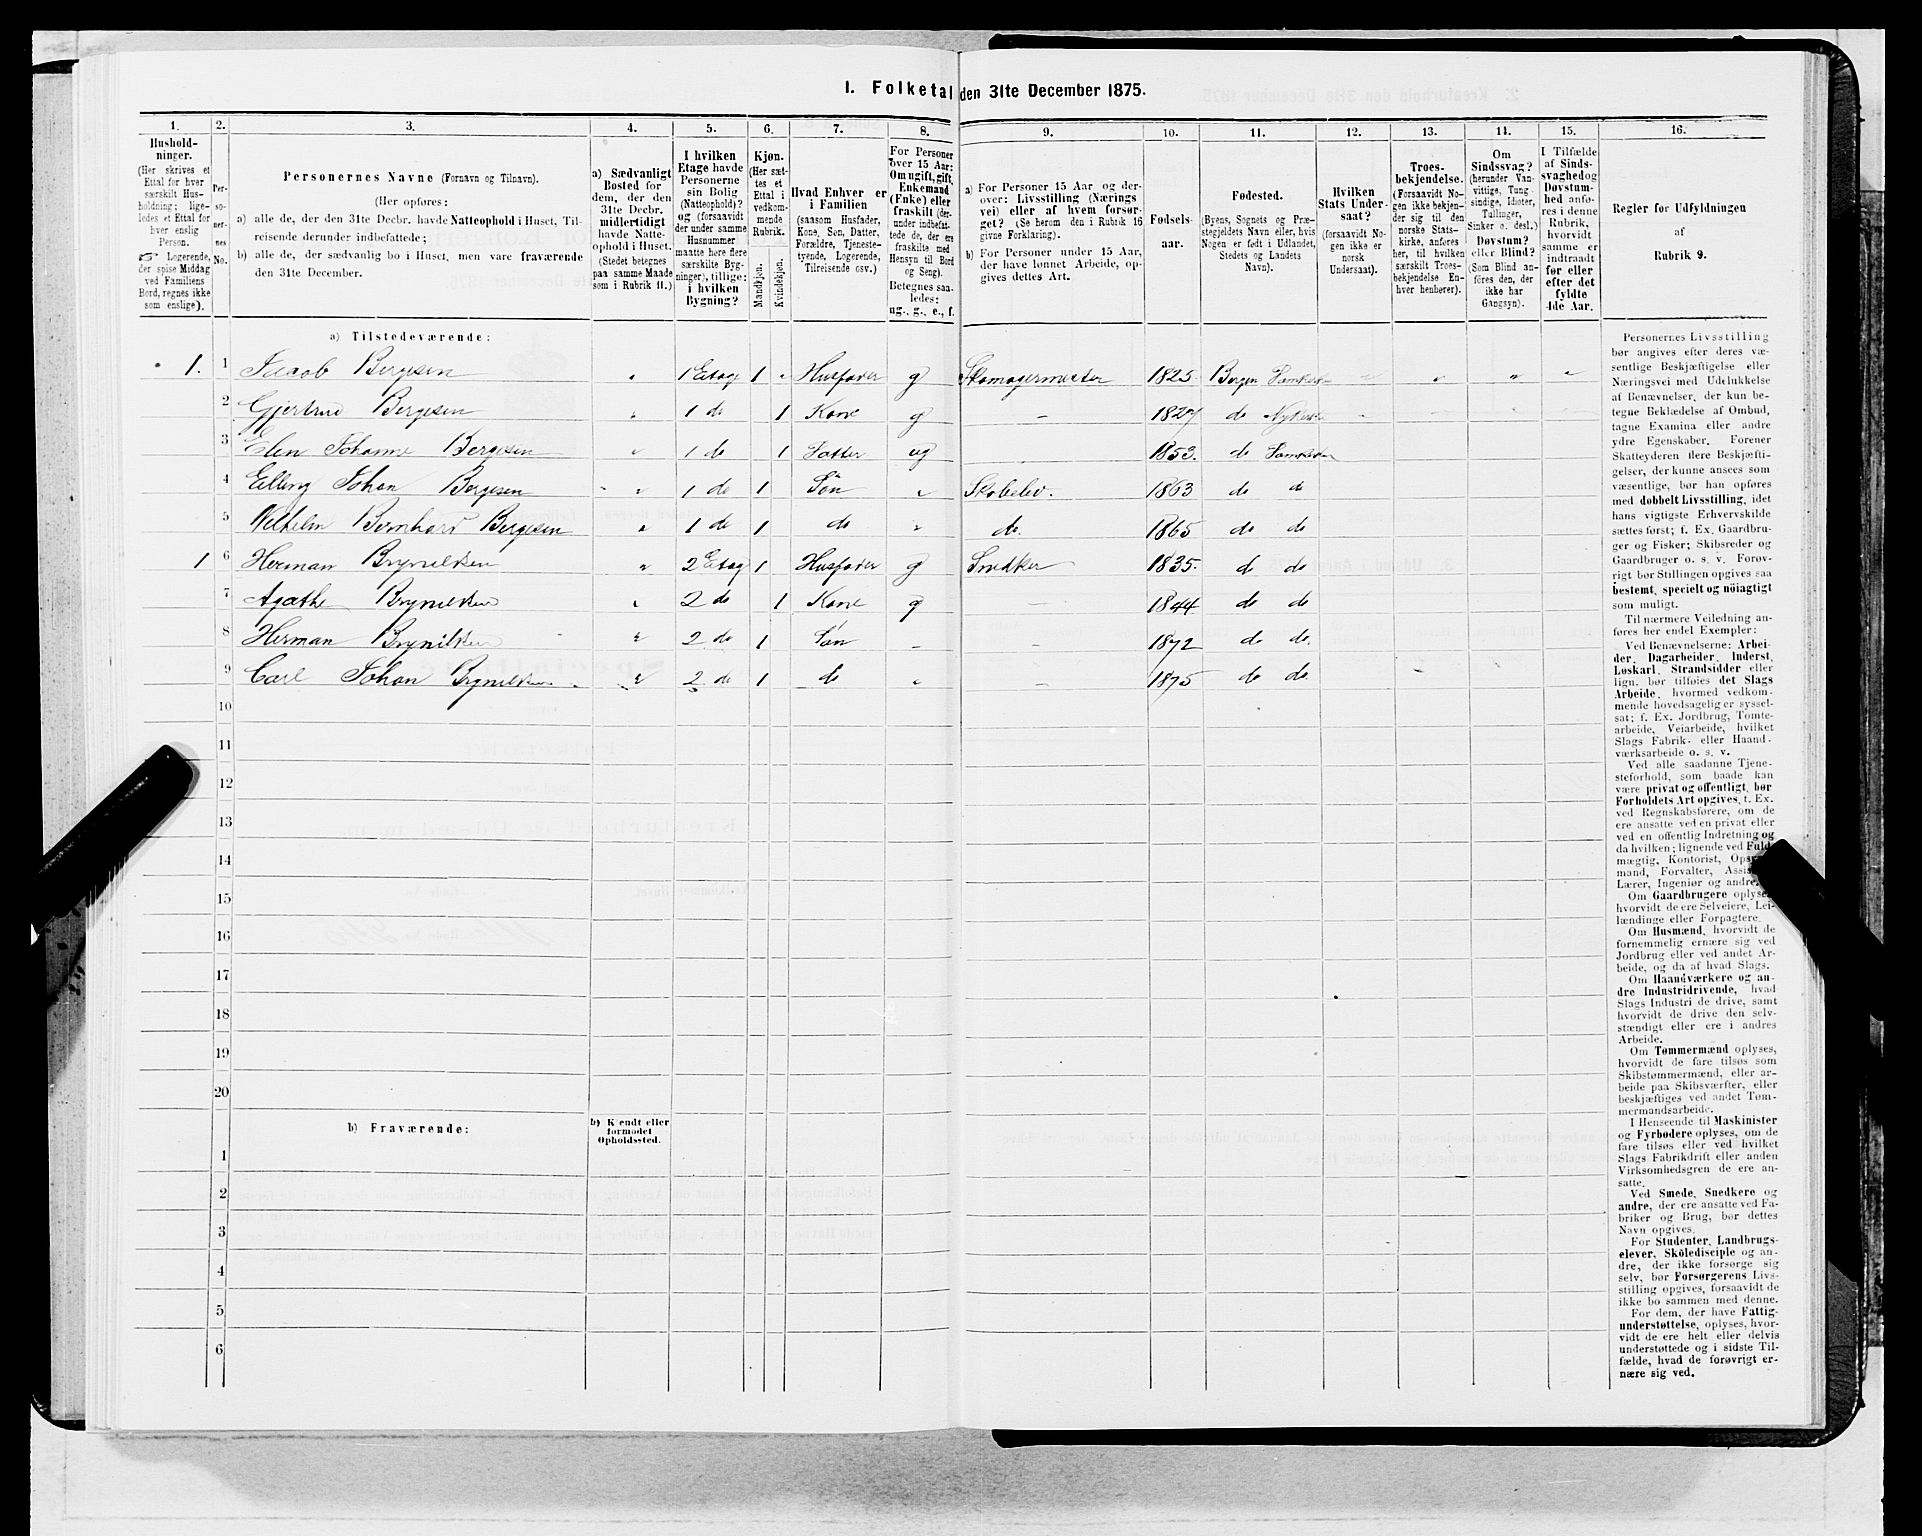 1. Folketal den 31te December 1875.
1.
Hushold-
ninger.
(Her skrives et
Ettal for hver
særskilt Hus-
holdning; lige-
ledes et Ettal for
hver enslig
Person.
☞ Logerende,
der spise Middag
ved Familiens
Bord, regnes ikke
som enslige).
2.
Per-
so-
ner-
nes
No.
3.
Personernes Navne (Fornavn og Tilnavn).
(Her opføres:
a) alle de, der den 31te Decbr. havde Natteophold i Huset, Til-
reisende derunder indbefattede;
b) alle de, der sædvanlig bo i Huset, men vare fraværende
den 31te December.
4.
a) Sædvanligt
Bosted for
dem, der den
31te Decbr.
midlertidigt
havde Natte-
ophold i Huset.
(Stedet betegnes
paa samme Maade
som i Rubrik 11.)
5.
I hvilken
Etage havde
Personerne
sin Bolig
(Natteophold)?
og (forsaavidt
der under samme
Husnummer
maatte høre flere
særskilte Byg-
ninger), tillige:
i hvilken
Bygning?
6.
Kjøn.
(Her sæt-
tes et
Ettal i
vedkom-
mende
Rubrik.
Mandkjøn.
Kvindekjøn.
7.
Hvad Enhver er
i Familien
(saasom Husfader,
Kone, Søn, Datter,
Forældre, Tjeneste-
tyende, Logerende,
Tilreisende osv.)
8.
For Personer
over 15 Aar:
Om ugift, gift,
Enkemand
(Enke) eller
fraskilt (der-
under indbefat-
tede de, der ere
fraskilte med
Hensyn til Bord
og Seng).
Betegnes saa-
ledes:
ug., g., e., f.
9.
a) For Personer 15 Aar og der-
over: Livsstilling (Nærings
vei) eller af hvem forsør-
get? (Se herom den i Rubrik 16
givne Forklaring).
b) For Personer under 15 Aar,
der have lønnet Arbeide, op-
gives dettes Art.
10.
Fødsels-
aar.
11.
Fødested.
(Byens, Sognets og Præ-
stegjeldets Navn eller, hvis
Nogen er født i Udlandet,
Stedets og Landets
Navn).
12.
Hvilken
Stats Under-
saat?
(forsaavidt No-
gen ikke er
norsk
Undersaat).
13.
Troes-
bekjendelse.
(Forsaavidt No-
gen ikke bekjen-
der sig til den
norske Stats-
kirke, anføres
her, til hvilken
særskilt Troes-
bekjendelse En-
hver henhører).
14.
Om
Sindssvag?
(herunder Van-
vittige, Tung-
sindige, Idioter,
Tullinger,
Sinker o. desl.)
Døvstum?
eller Blind?
(Som Blind an-
føres den, der
ikke har
Gangsyn).
15.
I Tilfælde
af Sinds-
svaghed og
Døvstum-
hed anfø-
res i denne
Rubrik,
hvorvidt
samme er
indtraadt
før eller
efter det
fyldte
4de Aar.
16.
Regler for Udfyldningen
af
Rubrik 9.
a) Tilstedeværende:
1. 1 Jacob Bergesen " 1 Etag 1 " Husfader g Skomagermester 1825 Bergen Domkirken " " " "
2 Gjertrud Bergesen " 1 do 1 Kone g – 1827 do Nykirken
3 Elen Johanne Bergesen " 1 do 1 Datter ug 1853. do Domkirken
4 Elling Johan Bergesen " 1 do 1 Søn " Skoelev. 1863 do do
5 Wilhelm Bernhard Bergesen " 1 do 1 do " do. 1865 do do
1 6 Herman Brynildsen " 2 Etag 1 Husfader g Snedker 1835. do do
7 Agathe Brynildsen " 2 do 1 Kone g – 1844 do do
8 Herman Brynildsen " 2 do 1 Søn – – 1872 do do.
9 Carl Johan Brynildsen " 2 do 1 do " – 1875 do do.
10
11
12
13
14
15
16
17
18
19
20
b) Fraværende:
b) Kjendt eller
formodet
Opholdssted.
1
2
3
4
5
6
Personernes Livsstilling
bør angives efter deres væ-
sentlige Beskjæftigelse eller
Næringsvei med Udelukkelse
af Benævnelser, der kun be-
tegne Beklædelse af Ombud,
tagne Examina eller andre
ydre Egenskaber. Forener
Skatteyderen flere Beskjæfti-
gelser, der kunne ansees som
væsentlige, bør han opføres
med dobbelt Livsstilling, idet
hans vigtigste Erhvervskilde
sættes først; f. Ex. Gaardbru-
ger og Fisker; Skibsreder og
Gaardbruger o. s. v. Forøv-
rigt bør Stillingen opgives saa
bestemt, specielt og nöiagtigt
som muligt.
Til nærmere Veiledning an-
føres her endel Exempler:
Ved Benævnelserne: Arbei-
der, Dagarbeider, Inderst,
Løskarl, Strandsidder eller
lign. bør tilføies det Slags
Arbeide, hvormed vedkom-
mende hovedsagelig er syssel-
sat; f. Ex. Jordbrug, Tomte-
arbeide, Veiarbeide, hvilket
Slags Fabrik- eller Haand-
værksarbeide o. s. v.
Ved alle saadanne Tjene-
steforhold, som baade kan
være privat og offentligt, bør
Forholdets Art opgives, t. Ex.
ved Regnskabsførere, om de
ere ansatte ved en privat eller
ved en offentlig Indretning og
da hvilken; lignende ved Fuld-
mægtig, Kontorist, Opsyns-
mand, Forvalter, Assistent,
Lærer, Ingeniør og andre.
Om Gaardbrugere oplyses,
hvorvidt de ere Selveiere, Lei-
lændinge eller Forpagtere.
Om Husmænd, hvorvidt de
fornemmelig ernære sig ved
Jordbrug eller ved andet Ar-
beide, og da af hvad Slags.
Om Haandværkere og an-
dre Industridrivende, hvad
Slags Industri de drive, samt
hvorvidt de drive den selv-
stændigt eller ere i andres
Arbeide.
Om Tømmermænd oplyses,
hvorvidt de fare tilsøs som
Skibstømmermænd, eller ar-
beide paa Skibsværfter, eller
beskjæftiges ved andet Tøm-
mermandsarbeide.
I Henseende til Maskinister
og Fyrbødere oplyses, om de
fare tilsøs eller ved hvilket
Slags Fabrikdrift eller anden
Virksomhedsgren de ere an-
satte.
Ved Smede, Snedkere og
andre, der ere ansatte ved Fa-
briker og Brug, bør dettes
Navn opgives.
For Studenter, Landbrugs-
elever, Skoledisciple og an-
dre, der ikke forsørge sig
selv, bør Forsørgerens Livs-
stilling opgives, forsaavidt de
ikke bo sammen med denne.
For dem, der have Fattig-
understøttelse, oplyses, hvor-
vidt de ere helt eller delvis
understøttede og i sidste Til-
fælde, hvad de forøvrigt er-
nære sig ved.